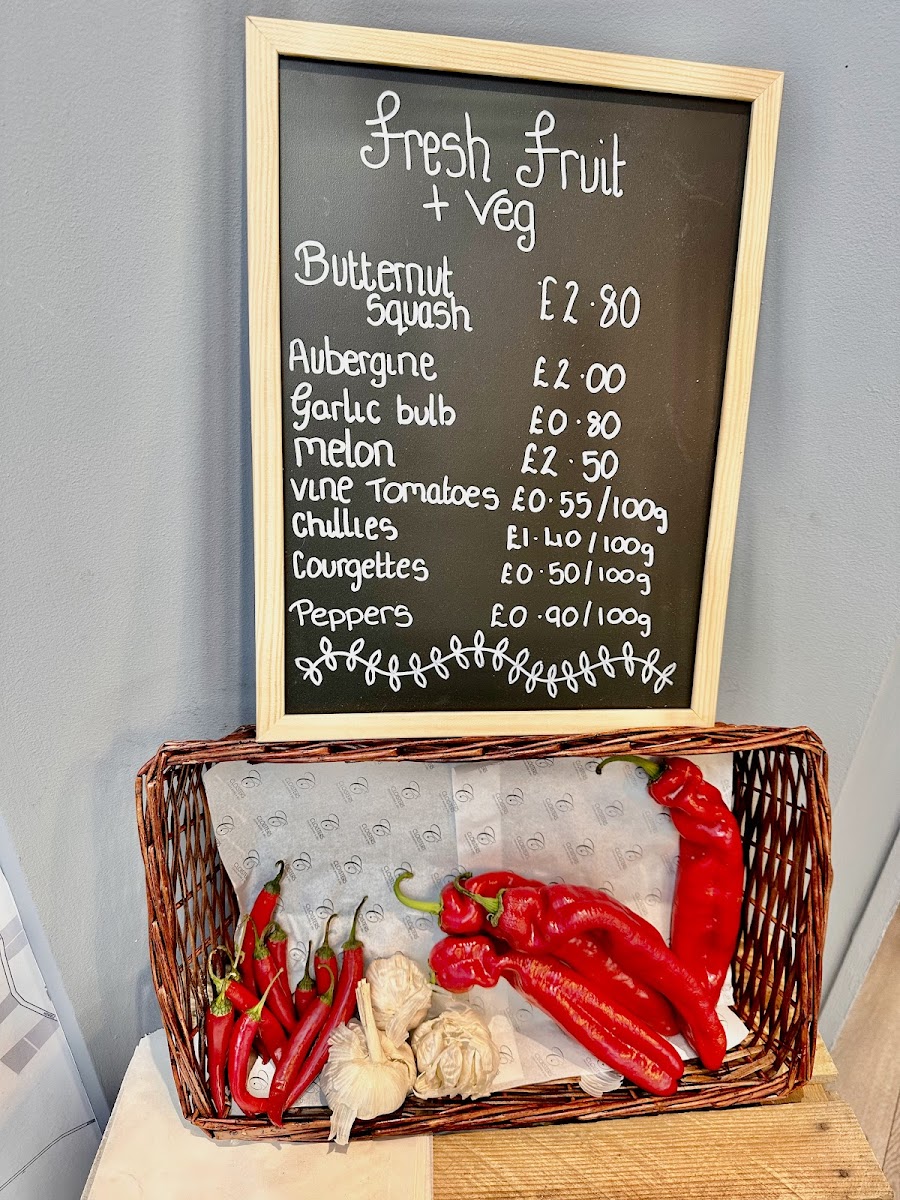 Fresh Fruit
+ Veg
Butternut
Squash £2.80
Aubergine £2.00
Garlic bulb £0.80
melon £2.50
vine Tomatoes £0.55/100g
Chillies £1.40/100g
Courgettes £0.50/100g
Peppers £0.90/100g